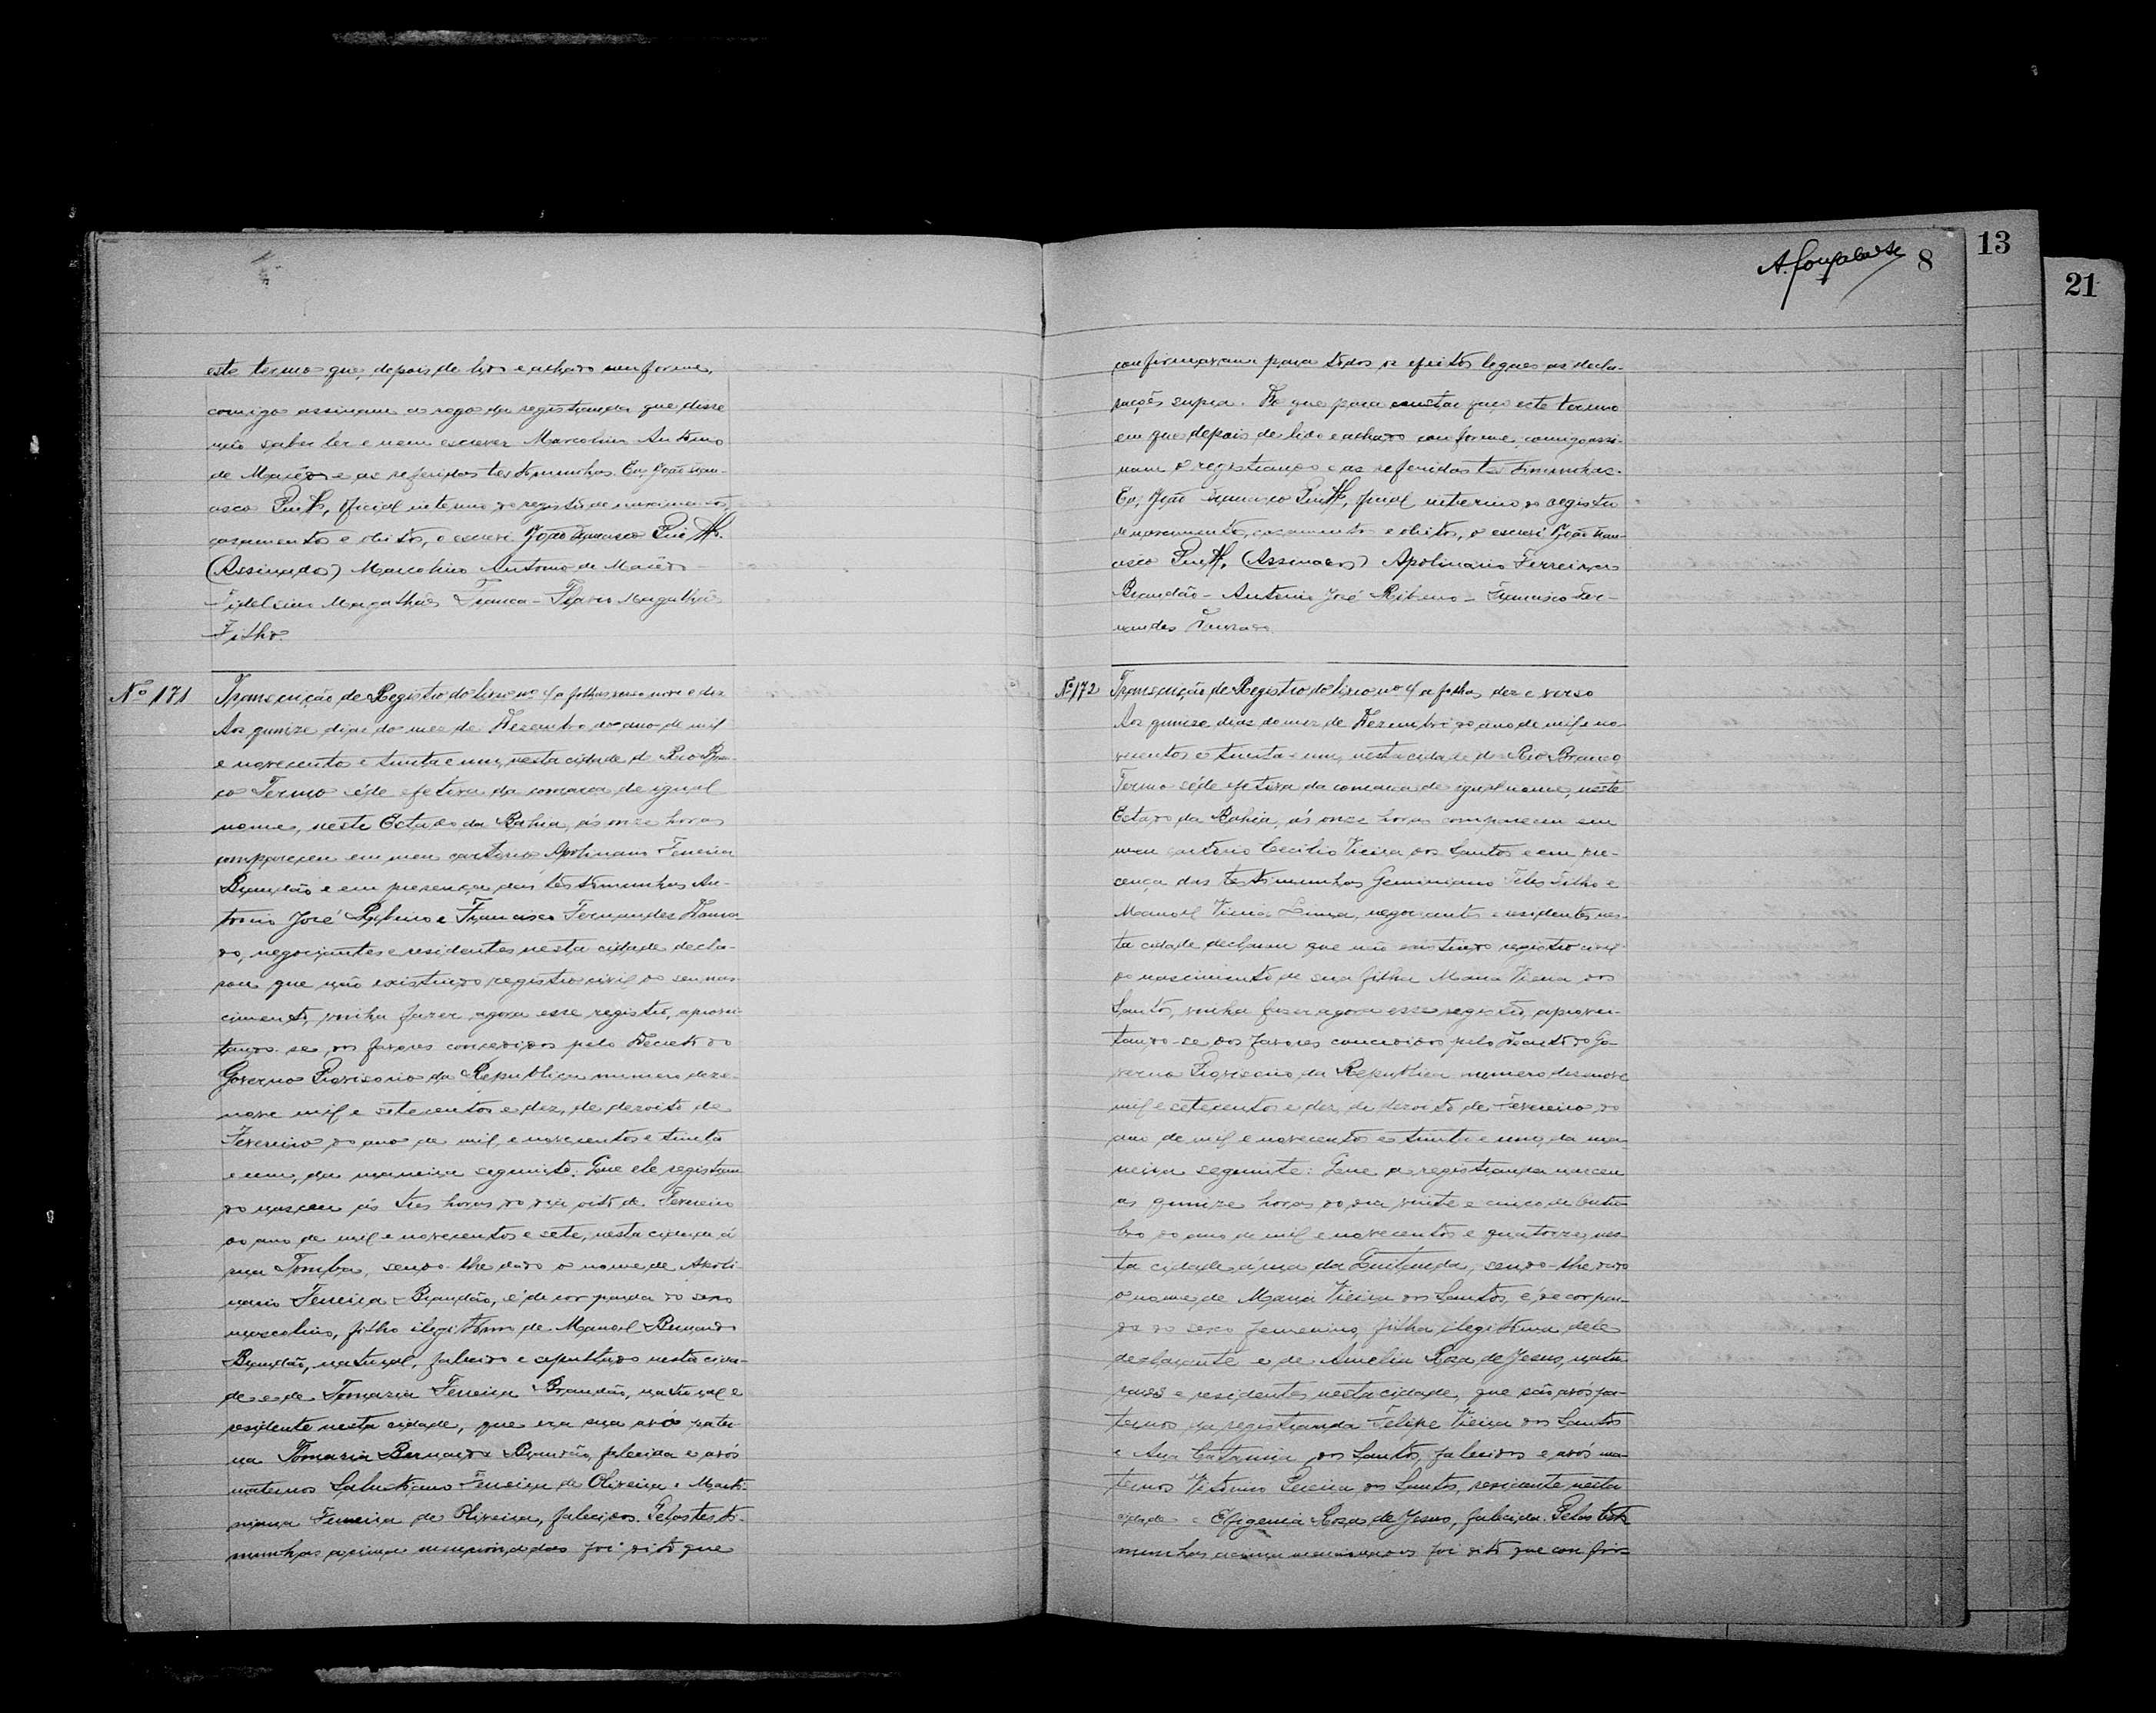 este termo que, depois de lido e achado conforme,
comigo assinam a rogo da registranda que disse
não saber ler e nem escrever Marcolino Antonio
de Macêdo e as referidas testemunhas. Eu, João Fran-
cisco Oficial interino do registro de nascimentos,
casamentos e obitos, o escrevi João Francisco
(Assinados) Marcolino Antonio de Macêdo
Fidelcino Magalhães Franca - Flavio Magalhães
Filho.
Nº 171
Transcrição de Registro do livro nº 4 a folhas verso nove e dez
Aos quinze dias do mes de Dezembro do ano de mil
e novecentos e trinta e um, nesta cidade de Rio Bran-
co Termo séde efetiva da comarca de igual
nome, neste Estado da Bahia, ás onze horas
compareceu em meu cartorio Apolinario Ferreira
Brandão e em presença das testemunhas An-
tonio José Ribeiro e Francisco Fernandes Doura-
do, negociantes e residentes nesta cidade decla-
rou que não existindo registro civil do seu nas-
cimento, vinha fazer agora esse registro, aprovei-
tando-se dos favores concedidos pelo Decreto do
Governo Provisorio da Republica numero deze-
nove mil e setecentos e dez, de dezoito de
Fevereiro do ano de mil e novecentos e trinta
e um, da maneira seguinte: Que ele registran-
do nasceu ás tres horas do dia oito de Fevereiro
do ano de mil e novecentos e sete, nesta cidade á
rua Tomba, sendo-lhe dado o nome de Apoli-
nario Ferreira Brandão, é de cor parda do sexo
masculino, filho ilegitimo de Manoel Bernardo
Brandão, natural, falecido e sepultado nesta cida-
de e de Tomazia Ferreira Brandão, natural e
residente nesta cidade, que era sua avó pater-
na Tomazia Bernarda Brandão, falecida e avós
maternos Salustiano Ferreira de Oliveira e Marti-
niana Ferreira de Oliveira, falecidos. Pelas teste-
munhas acima mencionadas foi dito que
A. Gonçalves
8
13
21
confirmavam para todos os efeitos legaes as decla-
rações supra. Do que para constar faço este termo
em que depois de lido e achado conforme comigo assi-
nam o registrando e as referidas testemunhas.
Eu, João Francisco oficial interino do registro
de nascimentos, casamentos e obitos, o escrevi João Fran-
cisco (Assinados) Apolinario Ferreira
Brandão - Antonio José Ribeiro - Francisco Fer-
nandes Dourado
Nº 172
Transcrição de Registro do livro nº 4 a folhas dez e verso
Aos quinze dias do mez de Dezembro do ano de mil e no-
vecentos e trinta e um, nesta cidade de Rio Branco,
Termo séde efetiva da comarca de igual nome, neste
Estado da Bahia, ás onze horas compareceu em
meu cartorio Cecilio Vieira dos Santos e em pre-
cença das testemunhas Geminiano Teles Filho e
Manoel Vieira Lima, negociantes e residentes nes-
ta cidade declarou que não existindo registro civil
do nascimento de sua filha Maria Vieira dos
Santos, vinha fazer agora esse registro, aprovei-
tando-se dos favores concedidos pelo Decreto do Go-
verno Provisorio da Republica numero dezenove
mil e setecentos e dez, de dezoito de Fevereiro do
ano de mil e novecentos e trinta e um, da ma-
neira seguinte: Que a registranda nasceu
as quinze horas do dia vinte e cinco de Outu-
bro do ano de mil e novecentos e quatorze, nes-
ta cidade á rua da Quitanda, sendo-lhe dado
o nome de Maria Vieira dos Santos, é de cor par-
da do sexo femenino, filha ilegitima dele
declarante e de Amelia Rosa de Jesus, natu-
raes e residentes nesta cidade, que são avós pa-
ternos da registranda Felipe Vieira dos Santos
e Ana Catarina dos Santos, falecidos e avós ma-
ternos Vitorino Pereira dos Santos, residente nesta
cidade e Efigenia Rosa de Jesus, falecida. Pelas teste-
munhas acima mencionadas foi dito que confir-